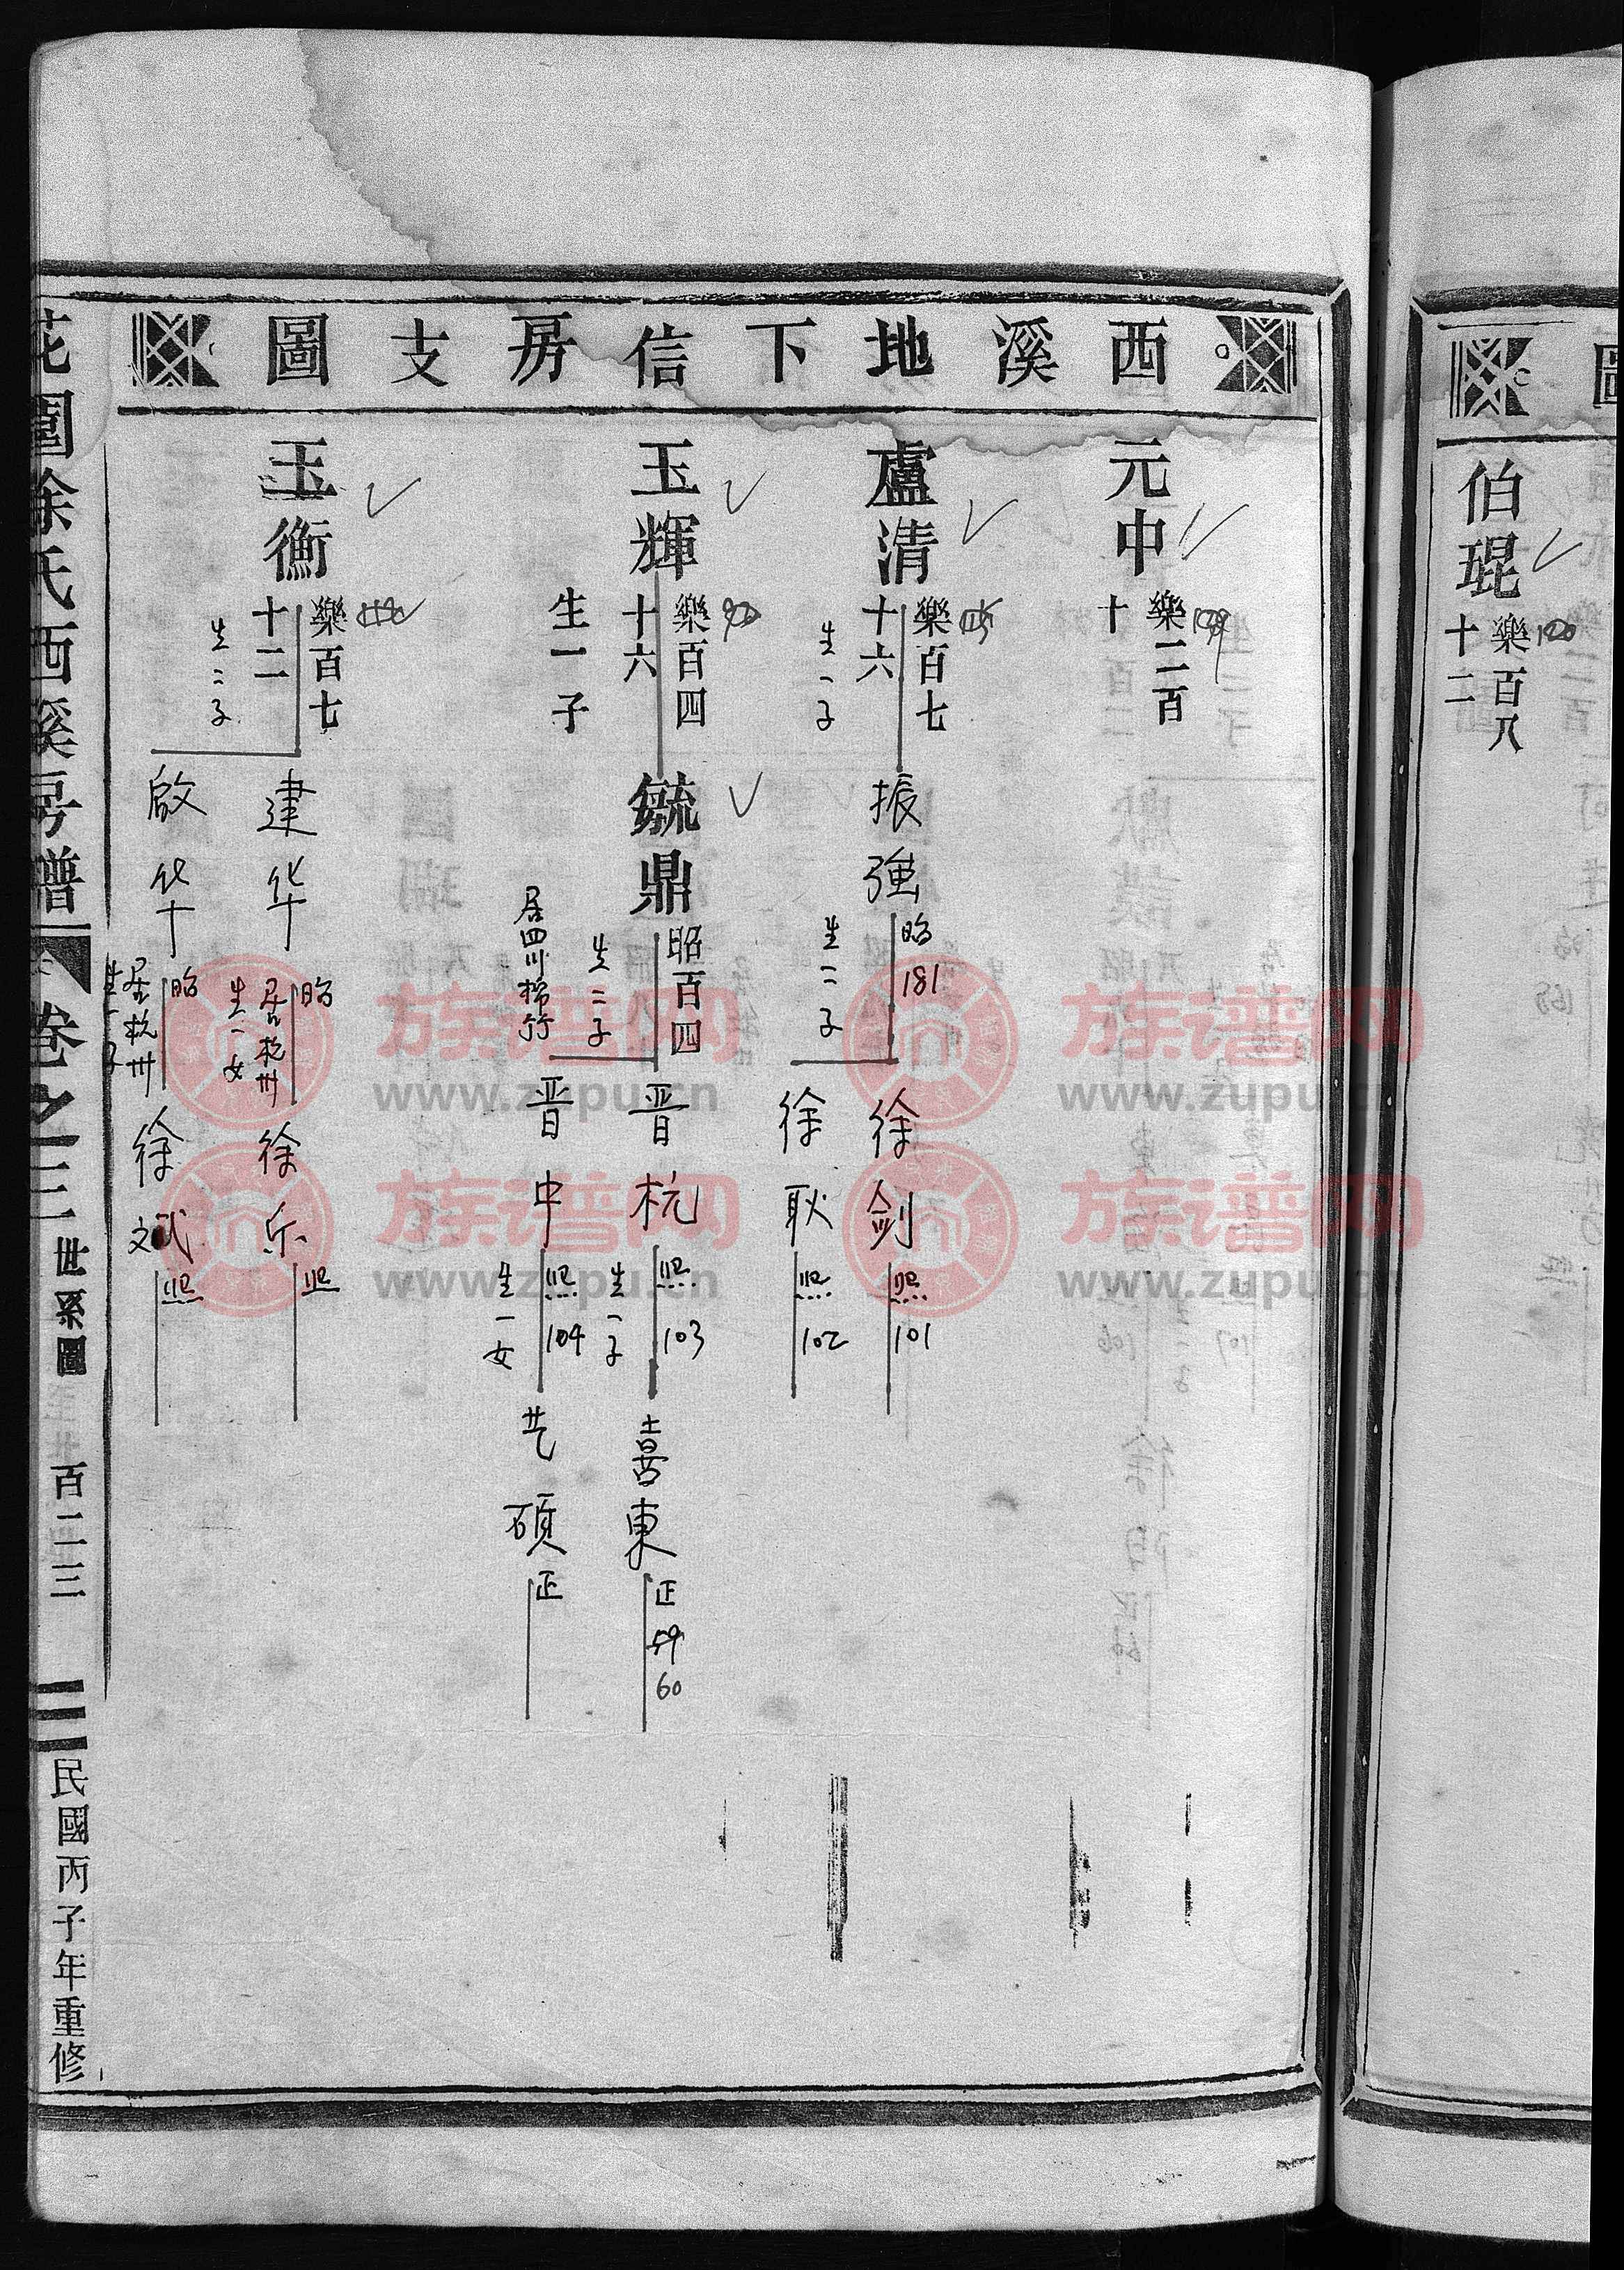 圖
伯琨
樂百八
十二
120
西溪地下信房支圖
元中
樂二百
十
盧清
樂百七
十六
生一子
振強
昭181
生二子
徐剑
照101
徐耿
照102
玉輝
樂百四
十六
生一子
毓鼎
昭百四
生二子
居四川棉竹
晋杭
照103
生一子
喜東
正59
60
晋中
照104
生一女
艺硕
正
玉衡
樂百七
十二
生二子
建华
昭
居杭州
生一女
徐乐
照
啟华
昭
居杭州
生一子
徐斌
照
花園徐氏西溪房譜
卷之三
世系圖
百二三
民國丙子年重修
族谱网
www.zupu.cn
族谱网
www.zupu.cn
族谱网
www.zupu.cn
族谱网
www.zupu.cn